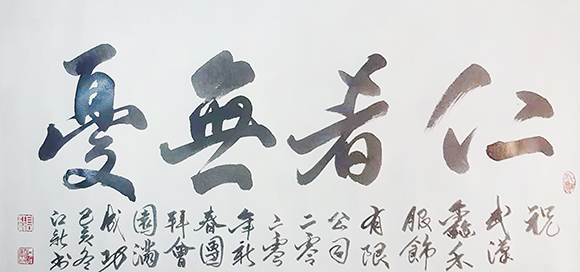 仁者無憂
祝
武漢
禾
服飾
有限
公司
二零
二零
年新
春團
拜會
圓滿
成功
己亥冬
江新书